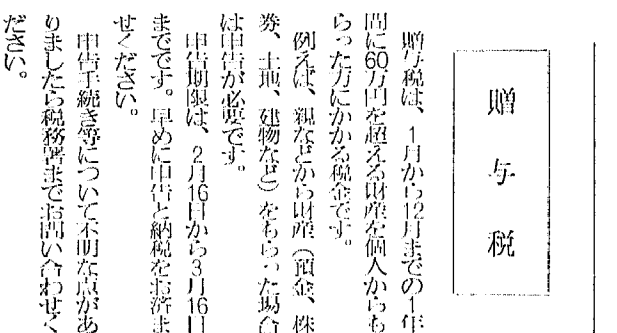 贈与税
贈与税は、1月から12月までの1年
間に60万円を超える財産を個人からも
らった方にかかる税金です。
例えば、親などから財産（預金、株
券、土地、建物など）をもらった場合
は申告が必要です。
申告期限は、2月16日から3月16日
までです。早めに申告と納税をお済ま
せください。
申告手続き等について不明な点があ
りましたら税務署までお問い合わせく
ださい。